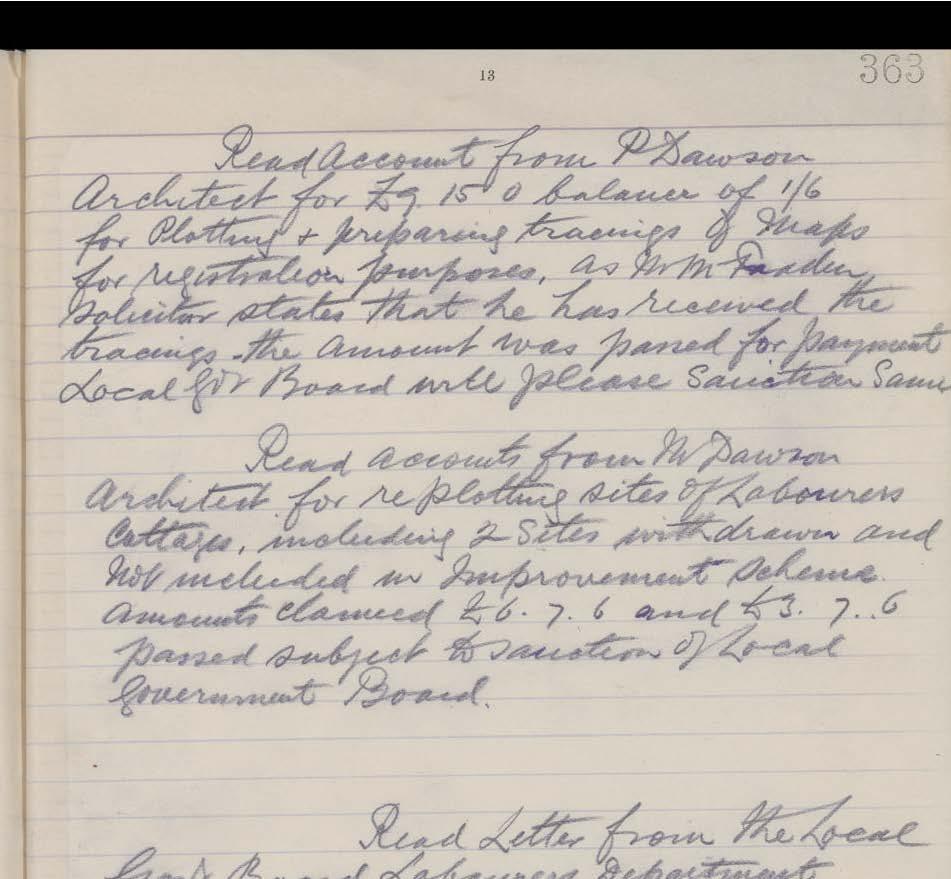 13
363
Read Account from P Dawson
Architect for £9. 15 0 balance of 1/6
for Plotting + preparing tracings of Maps
for registration purposes, as Mr
Solicitor states that he has received the
tracings - the amount was passed for payment
Local Govt Board will please Sanction Same
Read accounts from Mr Dawson
Architect for replotting sites of Labourers
Cottages, including 2 Sites withdrawn and
Not included in Improvement Scheme.
Amounts claimed £6. 7. 6 and £3. 7.. 6
passed subject to sanction of Local
Government Board.
Read Letter from the Local
Govt Board Labourers Department